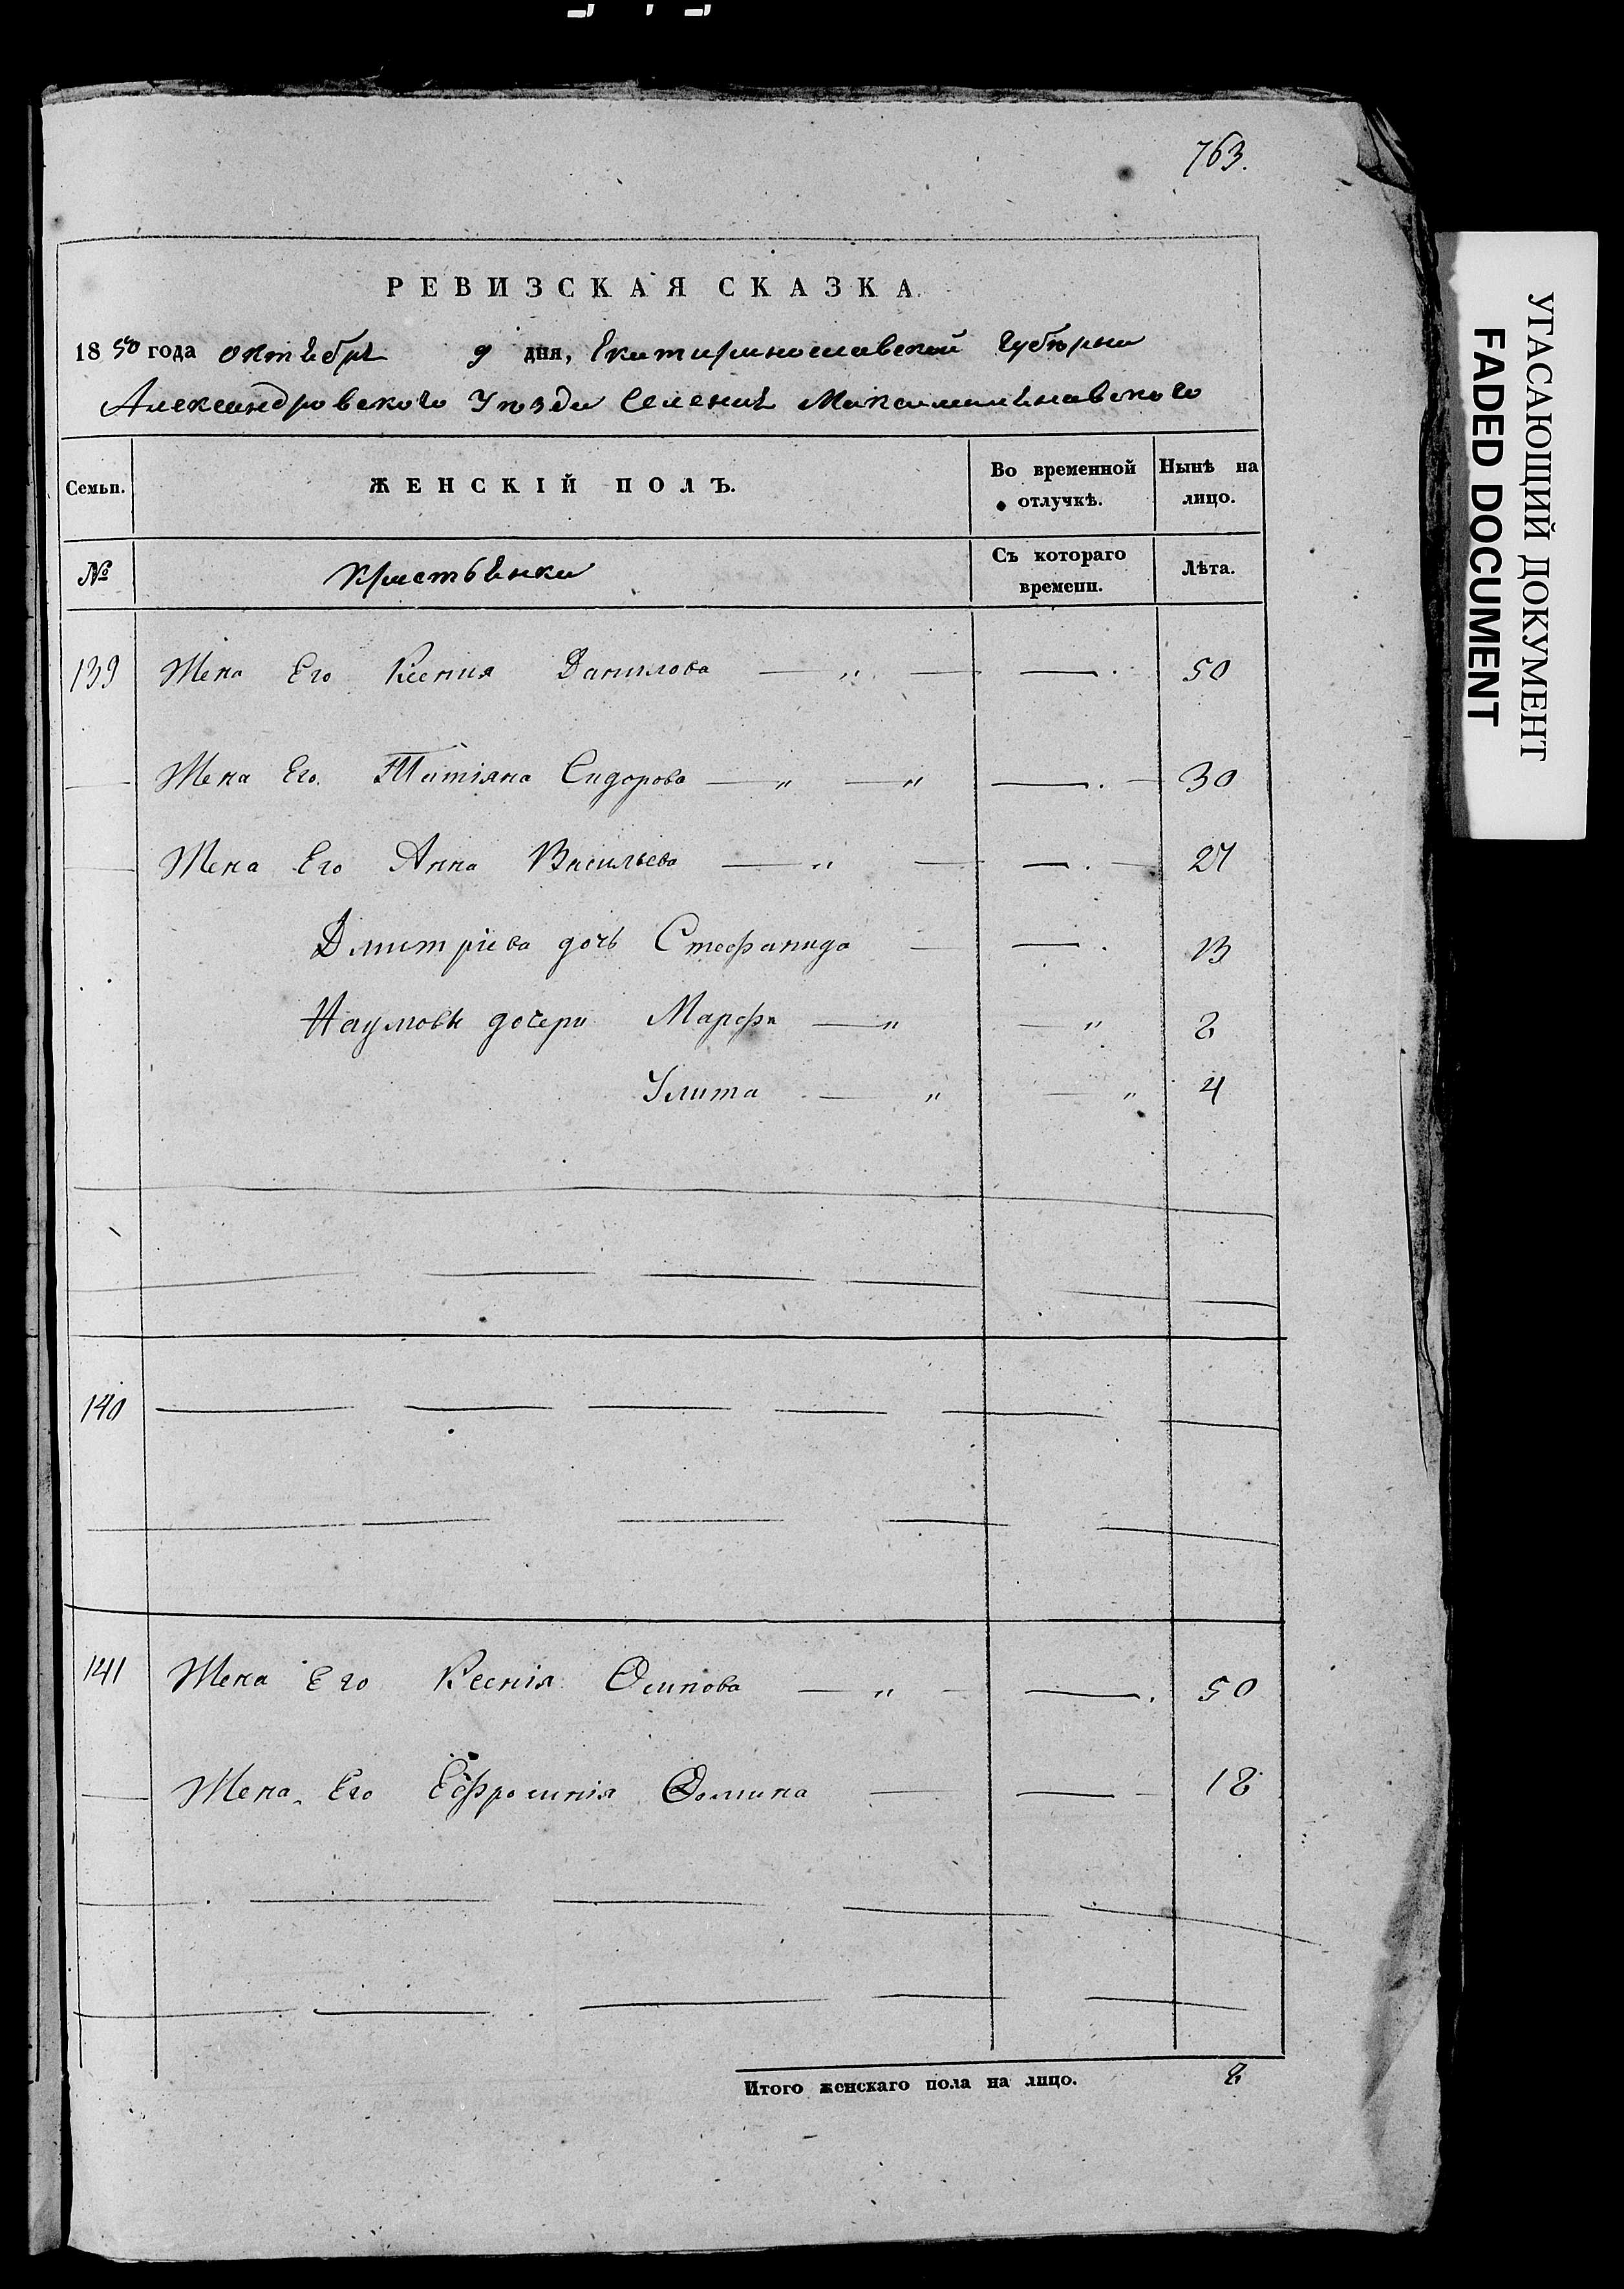 763.
РЕВИЗСКАЯ СКАЗКА
1850 года октября 9 дня, Екатеринославской Губернии
Александровского Уезда Селения Максимильяновского
Семьи. ЖЕНСКІЙ ПОЛЪ. Во временной отлучкѣ. Нынѣ на лицо.
№ Крестьянки Съ котораго времени. Лѣта.
139 Жена Его Ксения Данилова — „ — — . 50
— Жена Его. Татіяна Сидорова — „ — „ — . — 30
— Жена Его Анна Васильева — „ — — . — 27
Дмитріева дочь Стефанида — — . 13
Наумовы дочери Марфа — „ — „ 8
Улита — „ — „ 4
140
141 Жена Его Ксенія Осипова — „ — — . 50
— Жена Его Ефросинія Фомина — — — 18
Итого женскаго пола на лицо. 8
УГАСАЮЩИЙ ДОКУМЕНТ
FADED DOCUMENT